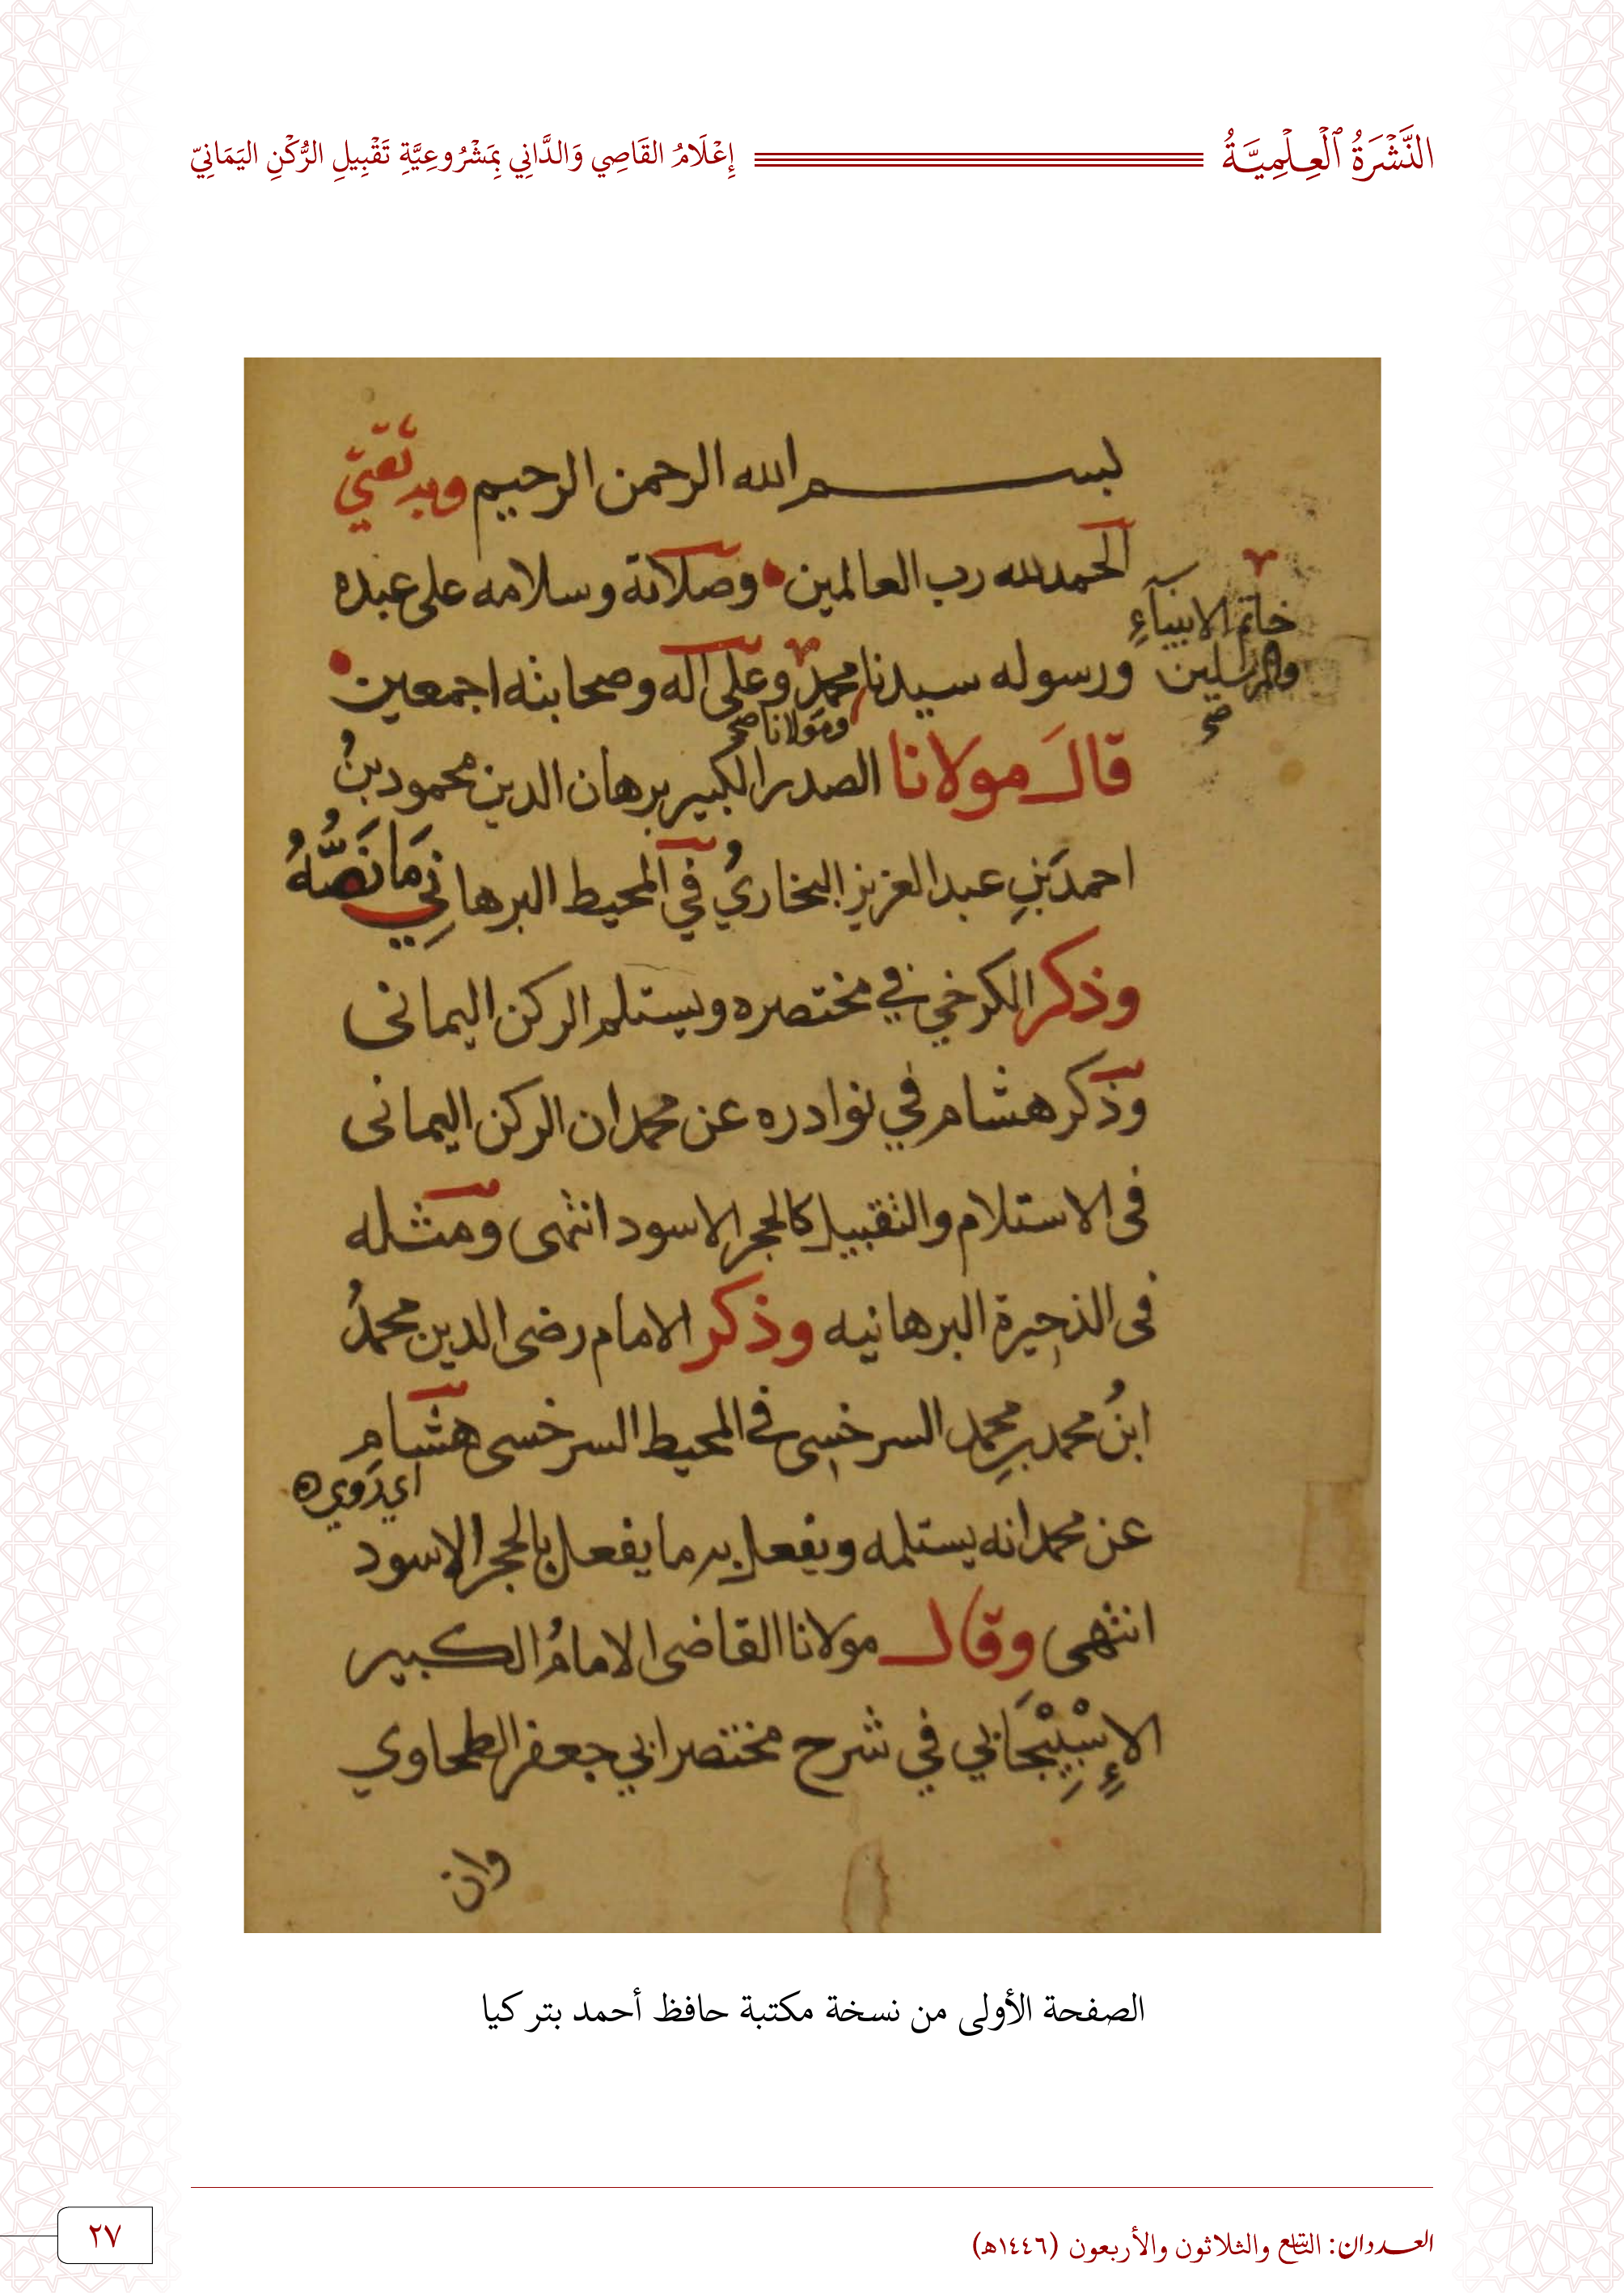 النَّشْرَةُ ٱلْعِلْمِيَّةُ
إِعْلَامُ القَاصِي وَالدَّانِي بِمَشْرُوعِيَّةِ تَقْبِيلِ الرُّكْنِ اليَمَانِيّ
بسم الله الرحمن الرحيم وبه ثقتي
الحمد لله رب العالمين وصلاته وسلامه على عبده
خاتم الانبيآءِ
والمرسلين صح
ورسوله سيدنا محمد وعلى آله وصحابته اجمعين
ومولانا صح
قال مولانا الصدر الكبير برهان الدين محمود بنُ
احمد بنِ عبد العزيز البخاريُ في المحيط البرهانِي مَا نَصُّهُ
وذكر الكرخي في مختصره ويستلم الركن اليمانى
وذكر هشام في نوادره عن محمد ان الركن اليمانى
فى الاستلام والتقبيل كالحجر الاسود انتهى ومثله
فى الذخيرة البرهانيه وذكر الامام رضى الدين محمدُ
ابنُ محمد بنِ محمد السرخسى في المحيط السرخسى هشام
اي رَوي ه
عن محمد انه يستلمه ويفعل به ما يفعل بالحجر الاسود
انتهى وقال مولانا القاضى الامامُ الكبير
الإِسْبِيْجَابي في شرح مختصر ابي جعفر الطحاوي
وان
الصفحة الأولى من نسخة مكتبة حافظ أحمد بتركيا
العددان: التاسع والثلاثون والأربعون (١٤٤٦هـ)
٢٧